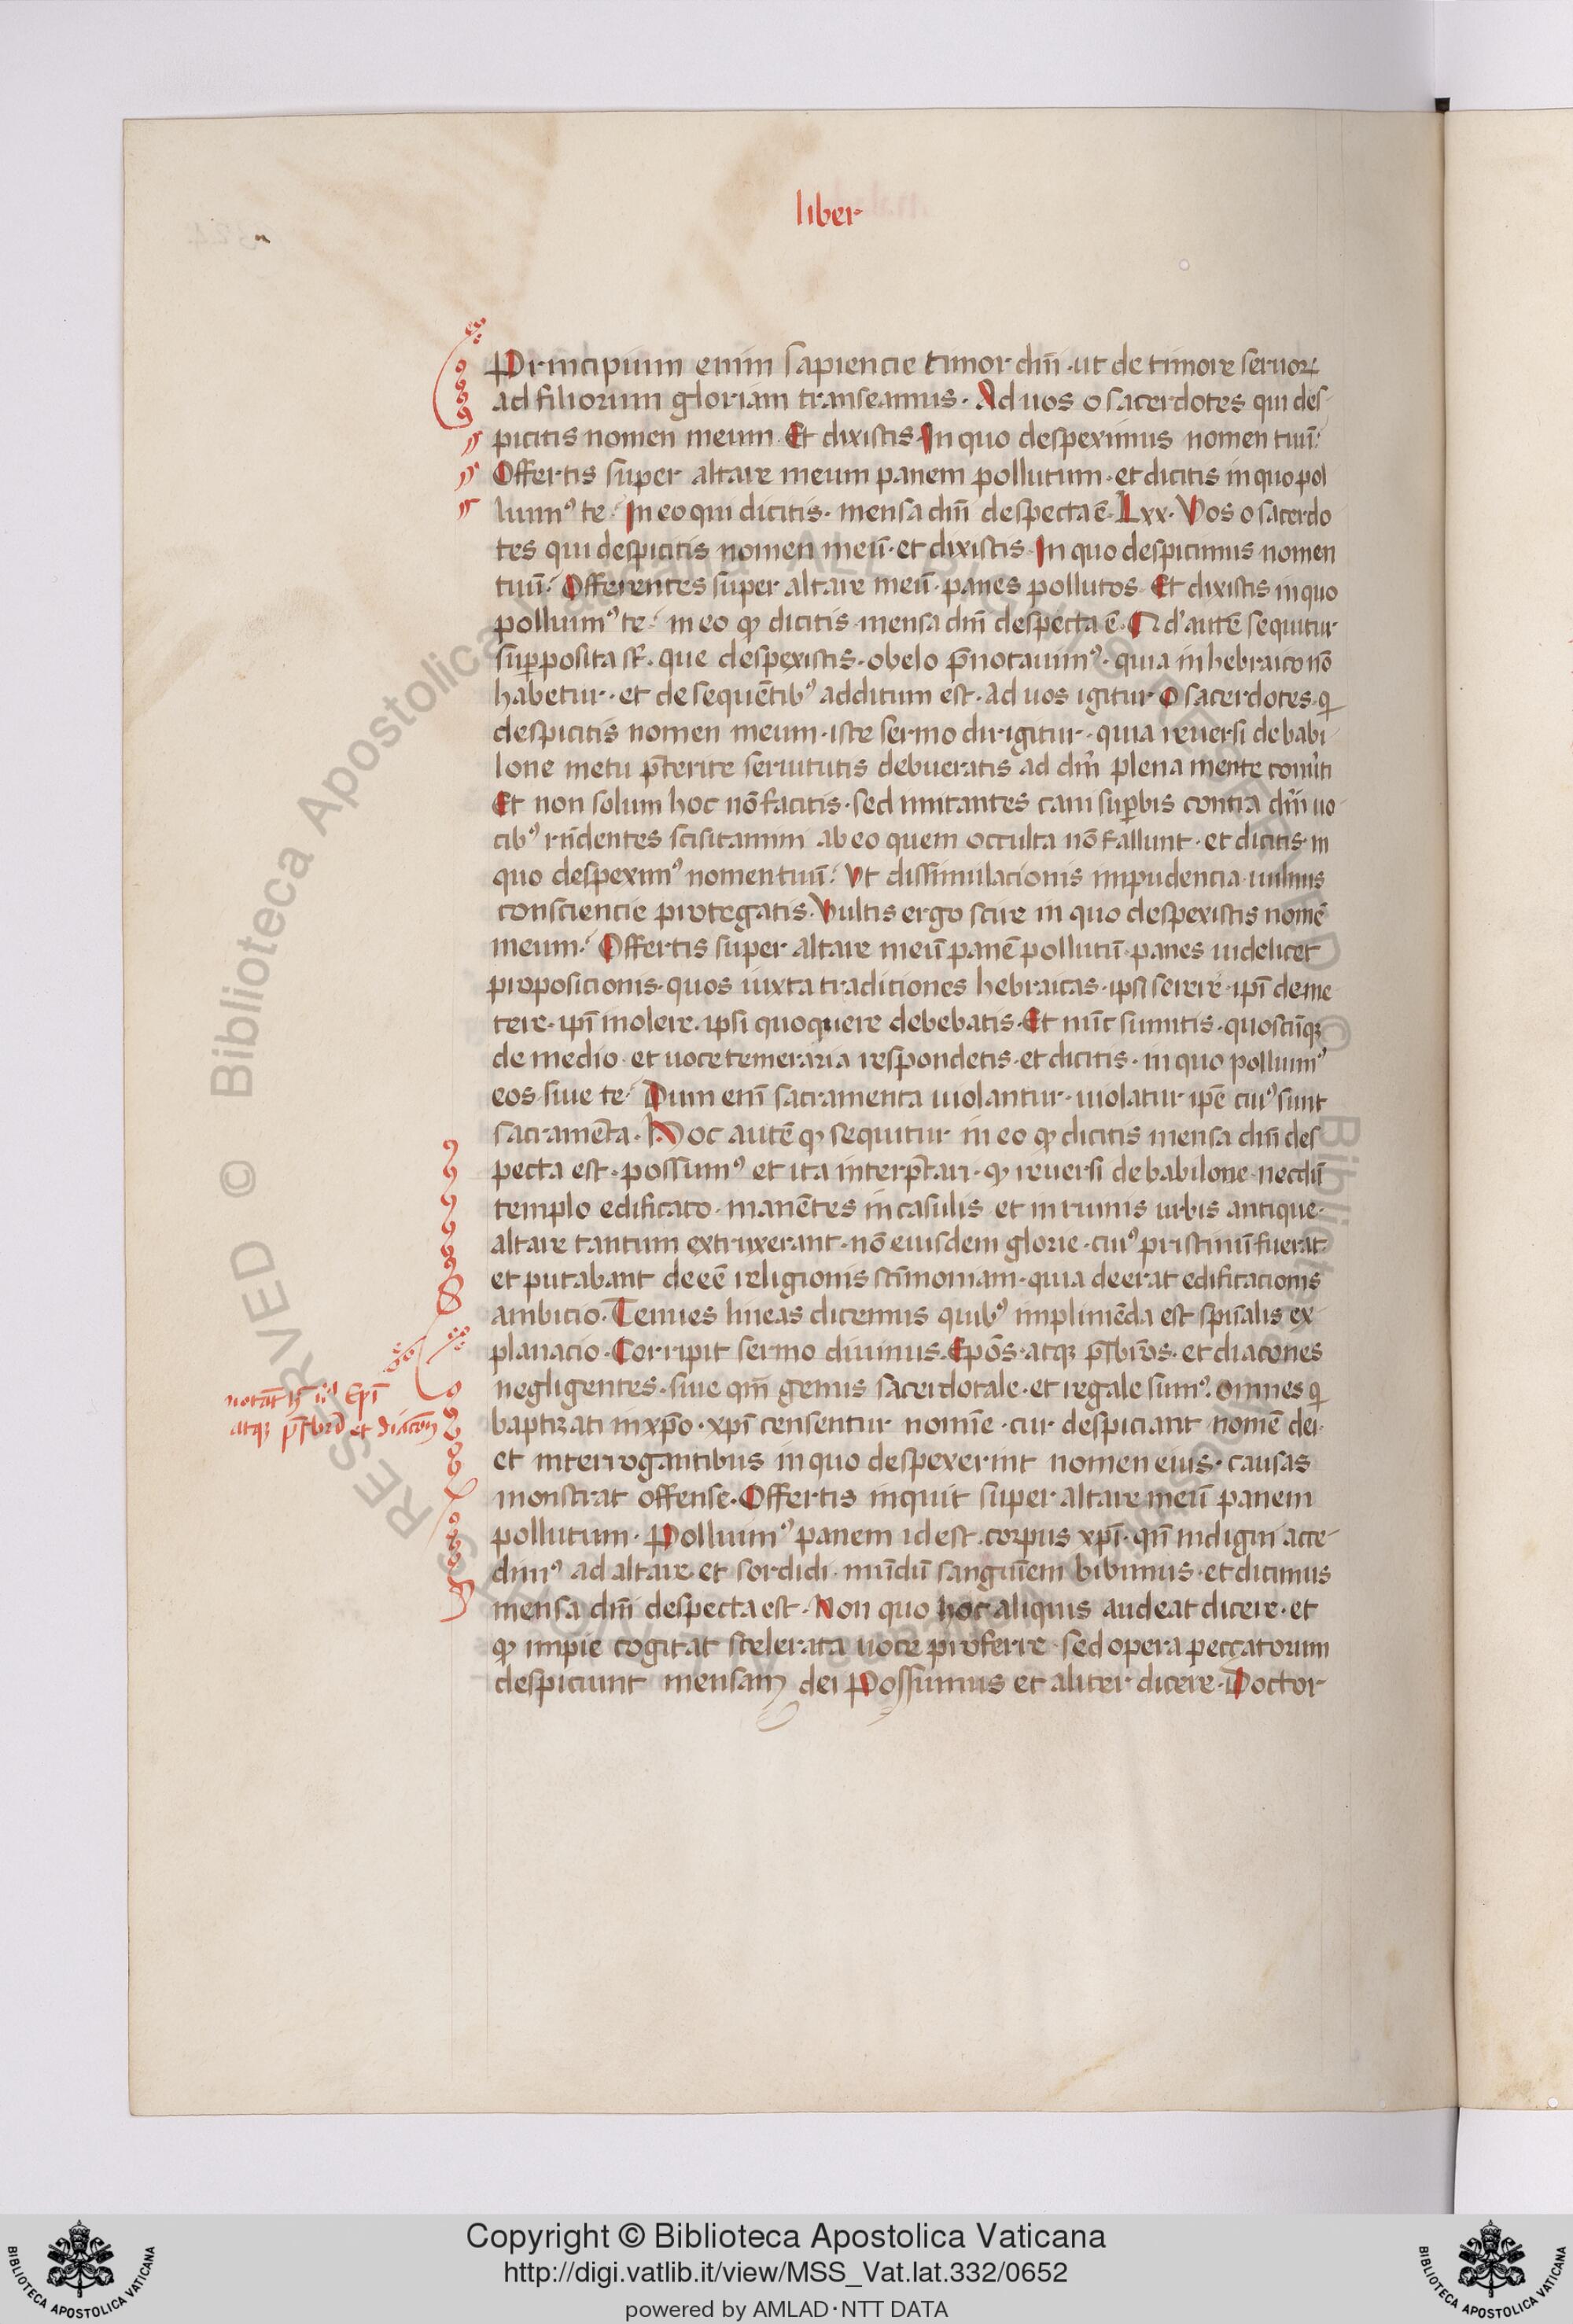 liber
Principium enim sapiencie timor dnī · ut de timore seruoꝝ
ad filiorum gloriam transeamus · Ad uos o sacerdotes qui des-
picitis nomen meum · Et dixistis · In quo despeximus nomen tuū?
Offertis super altare meum panem pollutum · et dicitis in quo pol
luimꝰ te? In eo qui dicitis · mensa dnī despecta ē · Lxx · Vos o sacerdo
tes qui despicitis nomen meū · et dixistis · In quo despicimus nomen
tuū? Offerentes super altare meū · panes pollutos · Et dixistis in quo
polluimꝰ te? in eo ꝙ dicitis · mensa dnī despecta ē · Id' autē sequitur
suꝑposita st̄ · que despexistis · obelo p̄notauimꝰ · quia in hebraico nō
habetur · et de sequētibꝰ additum est · ad uos igitur o sacerdotes · q̄
despicitis nomen meum · iste sermo dirigitur · quia reuersi de babi-
lone metu p̄terite seruitutis debueratis ad dnm̄ plena mente conuti
Et non solum hoc nō facitis · sed nutantes cam suꝑbis contra dnm̄ uo-
cibꝰ rn̄dentes scisitamini ab eo quem occulta nō fallunt · et dicitis in
quo despeximꝰ nomen tuū? Vt dissimulacionis impudencia · uulnus
consciencie protegatis · Vultis ergo scire in quo despexistis nomē
meum? Offertis super altare meū panē pollutū · panes uidelicet
proposicionis · quos iuxta tradiciones hebraicas · ipsi serere · ipī deme
tere · ipī molere · ipsi quoquere debebatis · Et nūc sumitis · quoscūqꝫ
de medio · et uoce temeraria respondetis · et dicitis · in quo polluimꝰ
eos · siue te? Dum enī sacramenta uiolantur · uiolatur ipē cuiꝰ sunt
sacramēta · Hoc autē ꝙ sequitur in eo ꝙ dicitis mensa dnī des
pecta est · possumꝰ et ita interp̄tari · ꝙ reuersi de babilone · necdū
templo edificato · manētes in casulis et in ruinis urbis antique ·
altare tantum extruxerant · nō eiusdem glorie · cuiꝰ pristinū fuerat
et putabant deeē religionis scīmoniam · quia deerat edificacionis
ambicio · Tenues lineas dicemus quibꝰ implinēda est spūalis ex-
planacio · Corripit sermo diuinus · Epōs · atqꝫ p̄sbrōs · et diacones
notāt h̄ ·ii·or Epī
atqꝫ p̄sbrō et diacon
negligentes · siue qm̄ genus sacerdotale · et regale sumꝰ · omnes q̄
baptizati in xp̄o · xpī censentur nomīe · cur despiciant nomē dei ·
et interrogantibus in quo despexerint nomen eius · causas
monstrat offense · Offertis inquit super altare meū panem
pollutum · Polluimꝰ panem id est · corpus xpī · qn̄ indigni acce-
dimꝰ ad altare · et sordidi · mūdū sanguīem bibimus · et dicimus
mensa dnī despecta est · Non quo hoc aliquis audeat dicere · et
ꝙ impie cogitat scelerata uoce proferre · sed opera peccatorum
despiciunt mensam dei Possumus et aliter dicere · Doctor
© Biblioteca Apostolica Vaticana ALL RIGHTS RESERVED
Copyright © Biblioteca Apostolica Vaticana
http://digi.vatlib.it/view/MSS_Vat.lat.332/0652
powered by AMLAD·NTT DATA
BIBLIOTECA APOSTOLICA VATICANA
BIBLIOTECA APOSTOLICA VATICANA